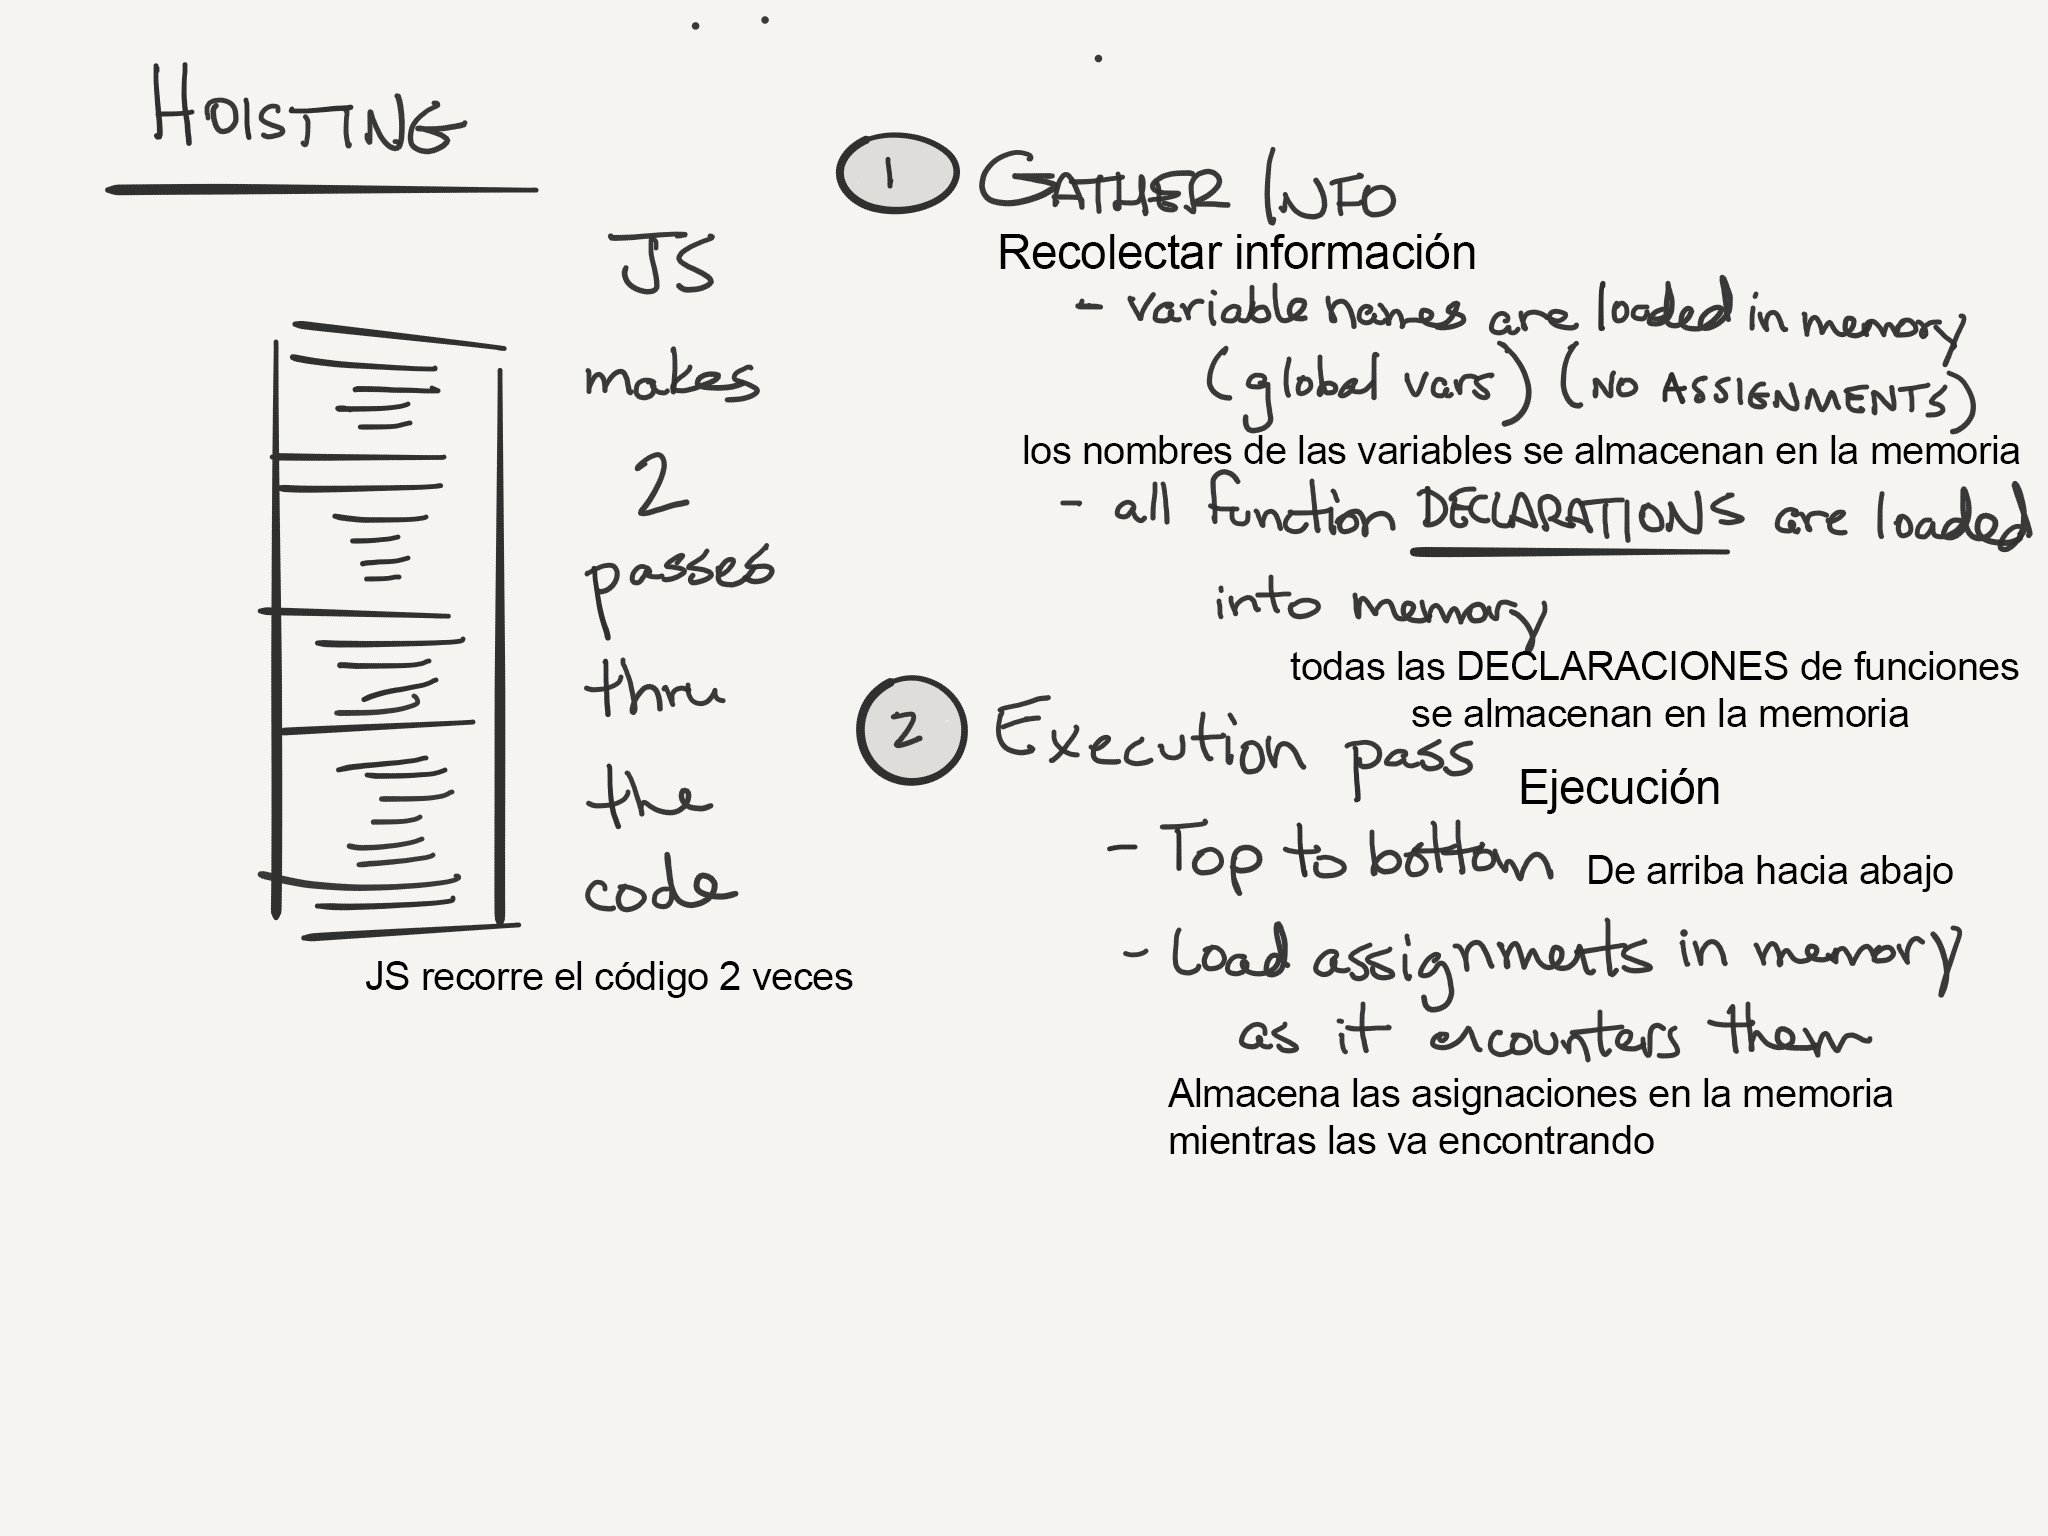 HOISTING
JS
makes
2
passes
thru
the
code
JS recorre el código 2 veces
1 GATHER INFO
Recolectar información
- variable names are loaded in memory
(global vars) (NO ASSIGNMENTS)
los nombres de las variables se almacenan en la memoria
- all function DECLARATIONS are loaded
into memory
todas las DECLARACIONES de funciones
se almacenan en la memoria
2 Execution pass
Ejecución
- Top to bottom De arriba hacia abajo
- Load assignments in memory
as it encounters them
Almacena las asignaciones en la memoria
mientras las va encontrando